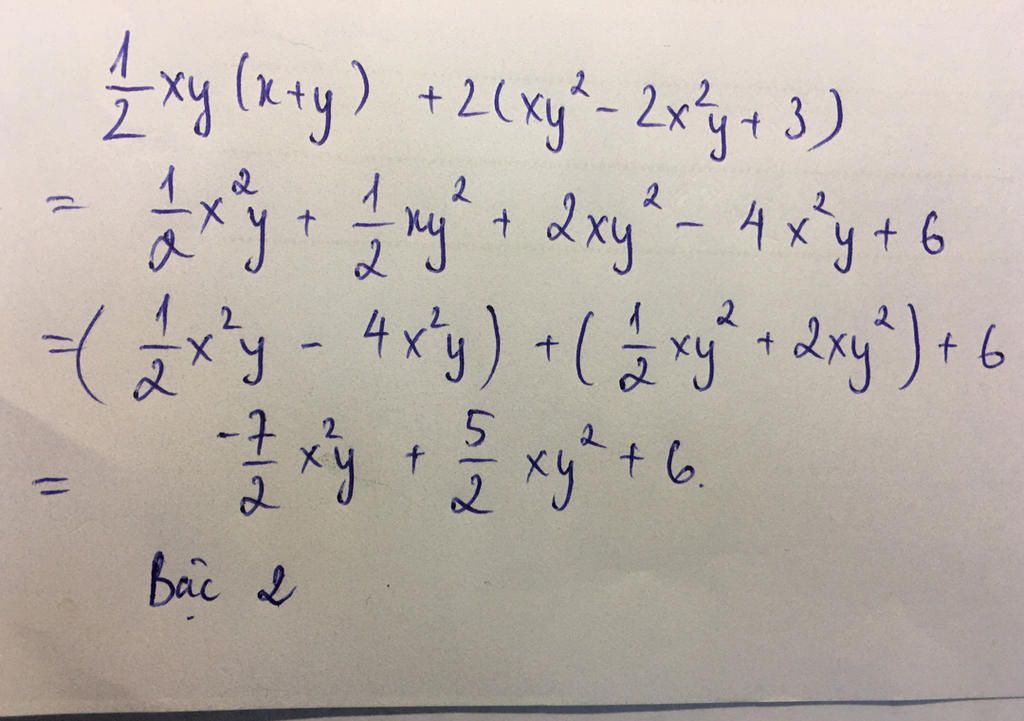 1/2 xy (x+y) + 2(xy² - 2x²y + 3)
= 1/2 x²y + 1/2 xy² + 2xy² - 4x²y + 6
=( 1/2 x²y - 4x²y) + ( 1/2 xy² + 2xy²) + 6
= -7/2 x²y + 5/2 xy² + 6.
Bậc 2